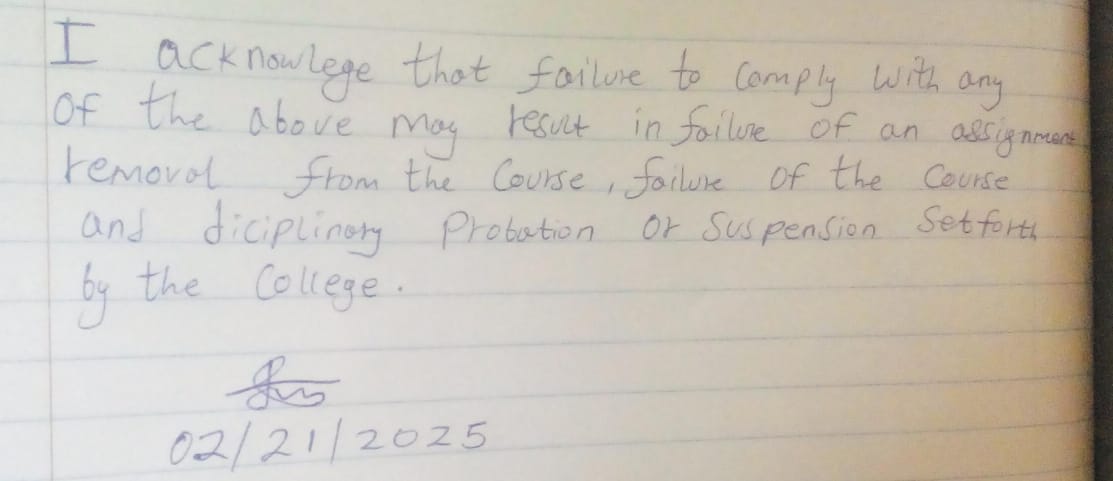 I acknowlege that failure to comply with any
of the above may result in failure of an assignment
removal from the Course, failure of the Course
and diciplinary Probation or Suspension Set forth
by the College.
02/21/2025